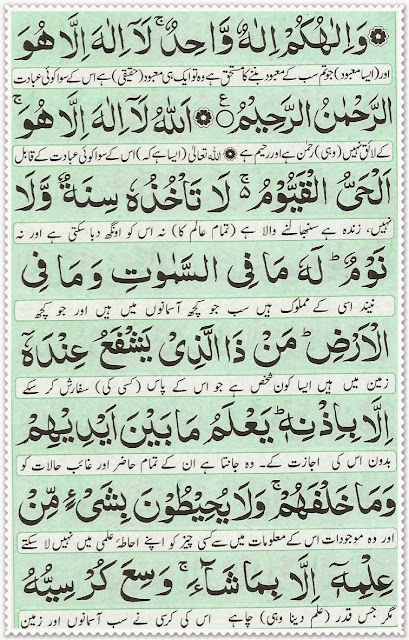 وَاِلٰهُكُمْ اِلٰهٌ وَّاحِدٌ ۚ لَآ اِلٰهَ اِلَّا هُوَ
اور (ایسا معبود) جو تم سب کے معبود بننے کا مستحق ہے وہ تو ایک ہی معبود (حقیقی) ہے اس کے سوا کوئی عبادت
الرَّحْمٰنُ الرَّحِيْمُ ۝ ع اَللّٰهُ لَآ اِلٰهَ اِلَّا هُوَ ۚ
کے لائق نہیں (وہی) رحمٰن ہے اور رحیم ہے اللہ تعالیٰ (ایسا ہے کہ) اس کے سوا کوئی عبادت کے قابل
اَلْحَيُّ الْقَيُّوْمُ ۚ لَا تَاْخُذُهٗ سِنَةٌ وَّلَا
نہیں، زندہ ہے سنبھالنے والا ہے (تمام عالم کا) نہ اس کو اونگھ دبا سکتی ہے اور نہ
نَوْمٌ ؕ لَهٗ مَا فِى السَّمٰوٰتِ وَمَا فِى
نیند اسی کے مملوک ہیں سب جو کچھ آسمانوں میں ہیں اور جو کچھ
الْاَرْضِ ؕ مَنْ ذَا الَّذِىْ يَشْفَعُ عِنْدَهٗٓ
زمین میں ہیں ایسا کون شخص ہے جو اس کے پاس (کسی کی) سفارش کر سکے
اِلَّا بِاِذْنِهٖ ؕ يَعْلَمُ مَا بَيْنَ اَيْدِيْهِمْ
بدون اس کی اجازت کے۔ وہ جانتا ہے ان کے تمام حاضر اور غائب حالات کو
وَمَا خَلْفَهُمْ ۚ وَلَا يُحِيْطُوْنَ بِشَىْءٍ مِّنْ
اور وہ موجودات اس کے معلومات میں سے کسی چیز کو اپنے احاطۂ علمی میں نہیں لا سکتے
عِلْمِهٖٓ اِلَّا بِمَا شَآءَ ۚ وَسِعَ كُرْسِيُّهُ
مگر جس قدر (علم دینا وہی) چاہے اس کی کرسی نے سب آسمانوں اور زمین